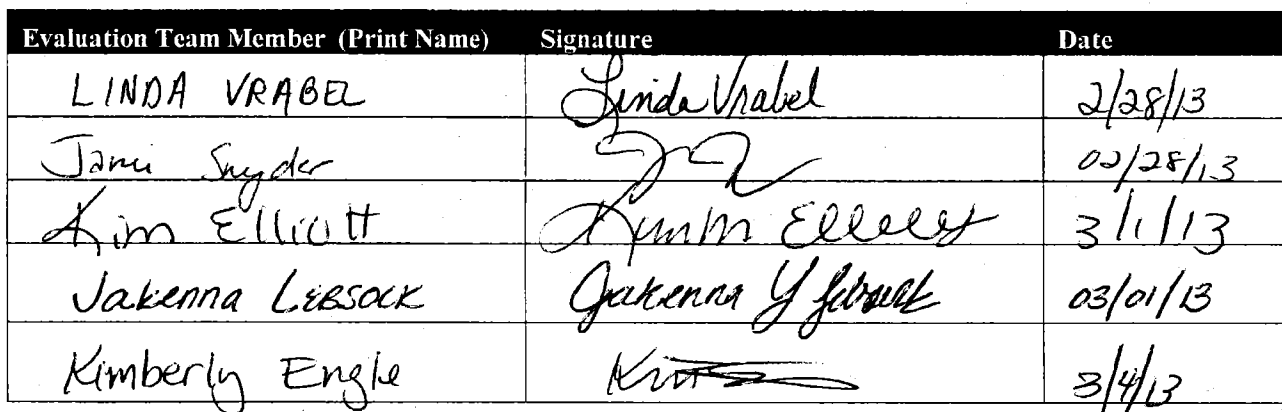 Evaluation Team Member (Print Name) Signature Date
LINDA VRABEL Linda Vrabel 2/28/13
Jami Snyder 02/28/13
Kim Elliott Kim m Elliott 3/1/13
Jakenna Lebsock Jakenna Y Lebsock 03/01/13
Kimberly Engle 3/4/13